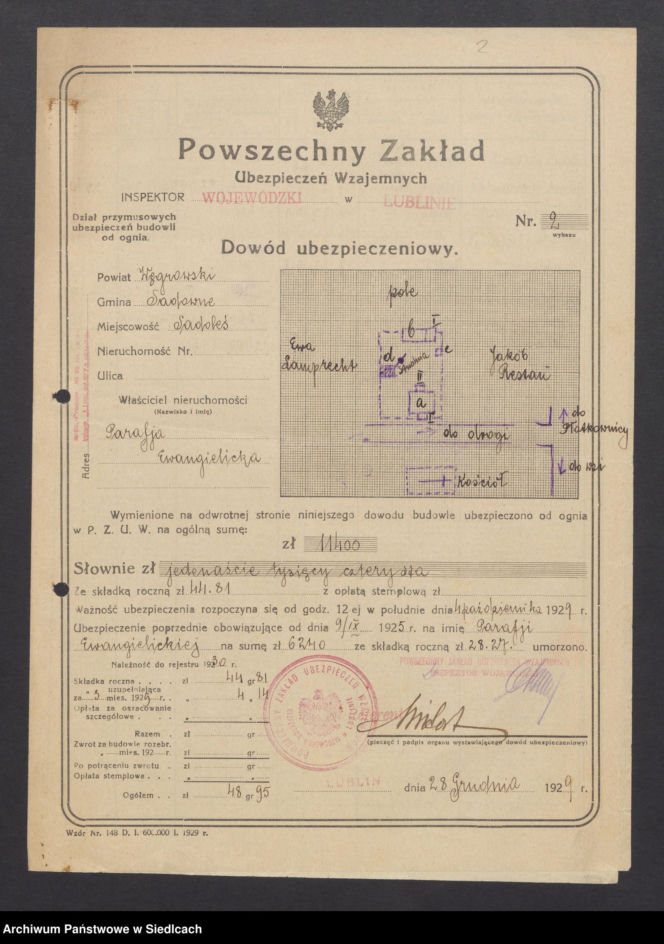 2
Powszechny Zakład
Ubezpieczeń Wzajemnych
INSPEKTOR WOJEWÓDZKI w LUBLINIE
Dział przymusowych
ubezpieczeń budowli
od ognia.
Nr. 2
wykazu
Dowód ubezpieczeniowy.
Powiat Węgrowski
Gmina Sadowne
Miejscowość Sadoleś
Nieruchomość Nr.
Ulica
Właściciel nieruchomości
(Nazwisko i imię)
Parafja
Ewangielicka
Adres
pole
Ewa
Lamprecht
b I
d
c
Studnia
II
a
I
Jakób
Restau
do drogi
do
Płatkownicy
do wsi
Kościół
Wymienione na odwrotnej stronie niniejszego dowodu budowle ubezpieczono od ognia
w P. Z. U. W. na ogólną sumę:
zł 11400
Słownie zł jedenaście tysięcy czterysta
Ze składką roczną zł 44.81 z opłatą stemplową zł
Ważność ubezpieczenia rozpoczyna się od godz. 12 ej w południe dnia 4 października 1929 r.
Ubezpieczenie poprzednie obowiązujące od dnia 9/IX 1925 r. na imię Parafji
Ewangielickiej na sumę zł 6240 ze składką roczną zł 28.27. umorzono.
Należność do rejestru 1930 r.
Składka roczna zł 44 gr 81
uzupełniająca
za 3 mies. 1929 r. 4.14
Opłata za oszacowanie
szczególowe
Razem zł gr
Zwrot za budowle rozebr.
mies. 192 r. zł gr
Po potrąceniu zwrotu zł gr
Opłata stemplowa
Ogółem zł 48 gr 95
POWSZECHNY ZAKŁAD UBEZPIECZEŃ WZAJEMNYCH
INSPEKTOR WOJEWÓDZKI
(pieczęć i podpis organu wystawiającego dowód ubezpieczeniowy)
LUBLIN dnia 28 Grudnia 1929 r.
Wzór Nr. 148 D. I. 600.000 I. 1929 r.
Archiwum Państwowe w Siedlcach